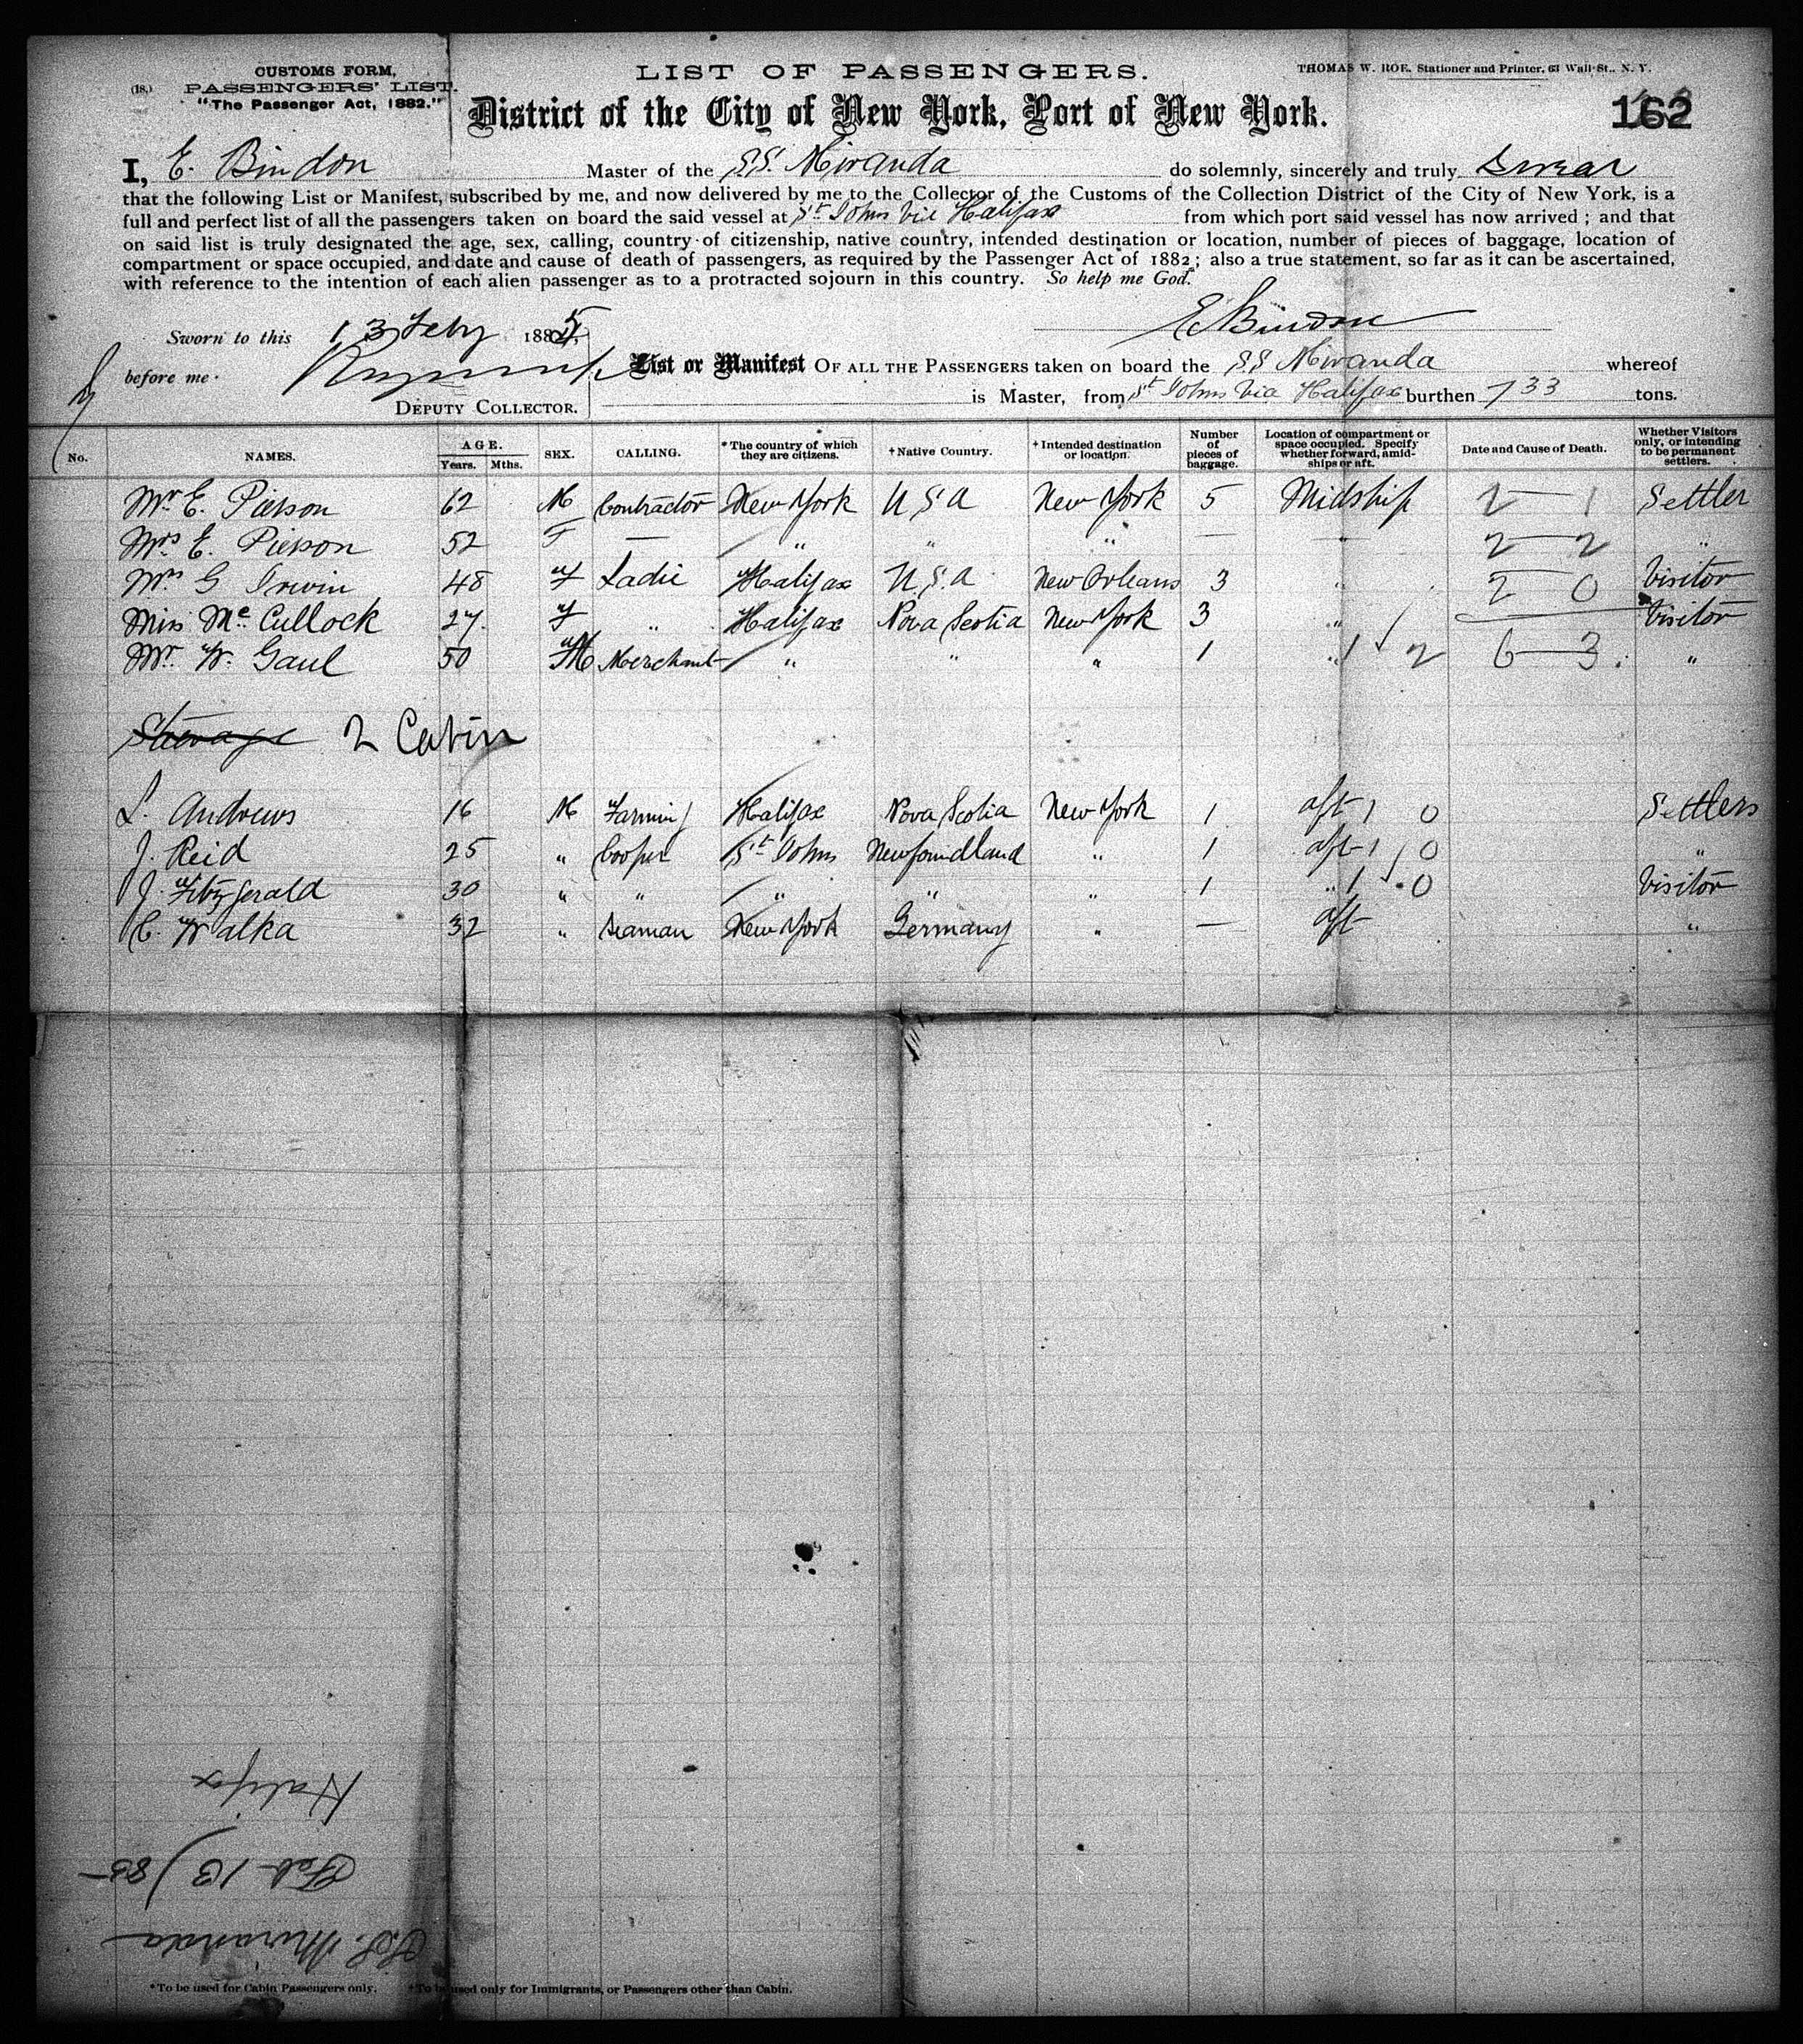 CUSTOMS FORM,
(18.) PASSENGERS' LIST.
"The Passenger Act, 1882."
LIST OF PASSENGERS.
THOMAS W. ROE, Stationer and Printer, 63 Wall St., N. Y.
District of the City of New York, Port of New York.
162
I, E. Bindon Master of the S.S. Miranda do solemnly, sincerely and truly Swear
that the following List or Manifest, subscribed by me, and now delivered by me to the Collector of the Customs of the Collection District of the City of New York, is a
full and perfect list of all the passengers taken on board the said vessel at St Johns Via Halifax from which port said vessel has now arrived ; and that
on said list is truly designated the age, sex, calling, country of citizenship, native country, intended destination or location, number of pieces of baggage, location of
compartment or space occupied, and date and cause of death of passengers, as required by the Passenger Act of 1882 ; also a true statement, so far as it can be ascertained,
with reference to the intention of each alien passenger as to a protracted sojourn in this country. So help me God.
E Bindon
Sworn to this 13 Feby 1885
before me
DEPUTY COLLECTOR.
List or Manifest OF ALL THE PASSENGERS taken on board the S.S Miranda whereof
is Master, from St Johns Via Halifax burthen 733 tons.
No. NAMES. AGE. Years. Mths. SEX. CALLING. *The country of which they are citizens. †Native Country. †Intended destination or location. Number of pieces of baggage. Location of compartment or space occupied. Specify whether forward, amidships or aft. Date and Cause of Death. Whether Visitors only, or intending to be permanent settlers.
Mr E. Pierson 62 M Contractor New York U S A New York 5 Midship 2 — 1 Settler
Mrs E. Pierson 52 F — " " " — " 2 — 2 "
Mrs G Irwin 48 F Ladie Halifax U.S.A New Orleans 3 " 2 0 Visitor
Miss Mc Cullock 27. F " Halifax Nova Scotia New York 3 " Visitor
Mr. W. Gaul 50 M Merchant " " " 1 " 1 ✓ 2 6 — 3. "
Steerage 2 Cabin
L. Andrews 16 M Farming Halifax Nova Scotia New York 1 aft 1 0 Settlers
J. Reid 25 " Cooper St Johns Newfoundland " 1 aft 1 0 "
J. Fitzgerald 30 " " " " " 1 " 1 0 Visitor
C. Walka 32 " Seaman New York Germany " — aft "
Halifax
Feb 13/85
S.S. Miranda
*To be used for Cabin Passengers only. †To be used only for Immigrants, or Passengers other than Cabin.